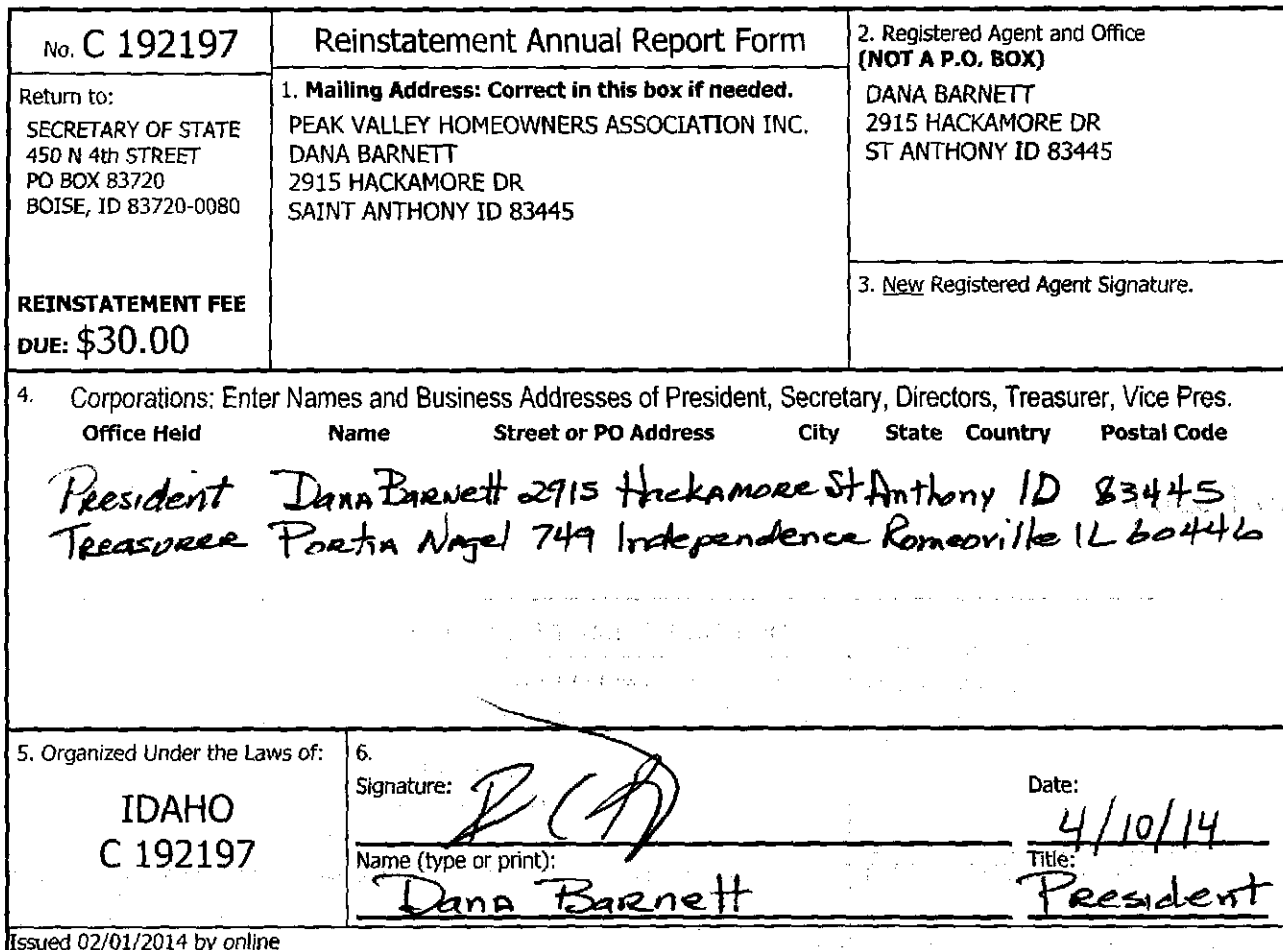 No. C 192197
Return to:
SECRETARY OF STATE
450 N 4th STREET
PO BOX 83720
BOISE, ID 83720-0080
REINSTATEMENT FEE
DUE: $30.00
Reinstatement Annual Report Form
1. Mailing Address: Correct in this box if needed.
PEAK VALLEY HOMEOWNERS ASSOCIATION INC.
DANA BARNETT
2915 HACKAMORE DR
SAINT ANTHONY ID 83445
2. Registered Agent and Office
(NOT A P.O. BOX)
DANA BARNETT
2915 HACKAMORE DR
ST ANTHONY ID 83445
3. New Registered Agent Signature.
4. Corporations: Enter Names and Business Addresses of President, Secretary, Directors, Treasurer, Vice Pres.
Office Held Name Street or PO Address City State Country Postal Code
President Dana Barnett 2915 Hackamore St Anthony ID 83445
Treasurer Portia Nagel 749 Independence Romeoville IL 60446
5. Organized Under the Laws of:
IDAHO
C 192197
6.
Signature:
Date:
4/10/14
Name (type or print):
Dana Barnett
Title:
President
Issued 02/01/2014 by online